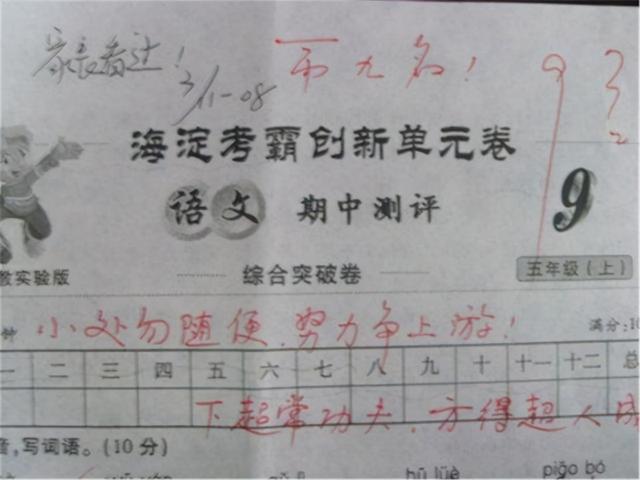 家长看过! 第九名! 93
3/11-08
海淀考霸创新单元卷
语文 期中测评 9
教实验版 综合突破卷 五年级(上)
钟 小处勿随便,努力争上游! 满分:10
一 二 三 四 五 六 七 八 九 十 十一 十二 总
下超常功夫,方得超人成
音,写词语。(10分)
piāo bó